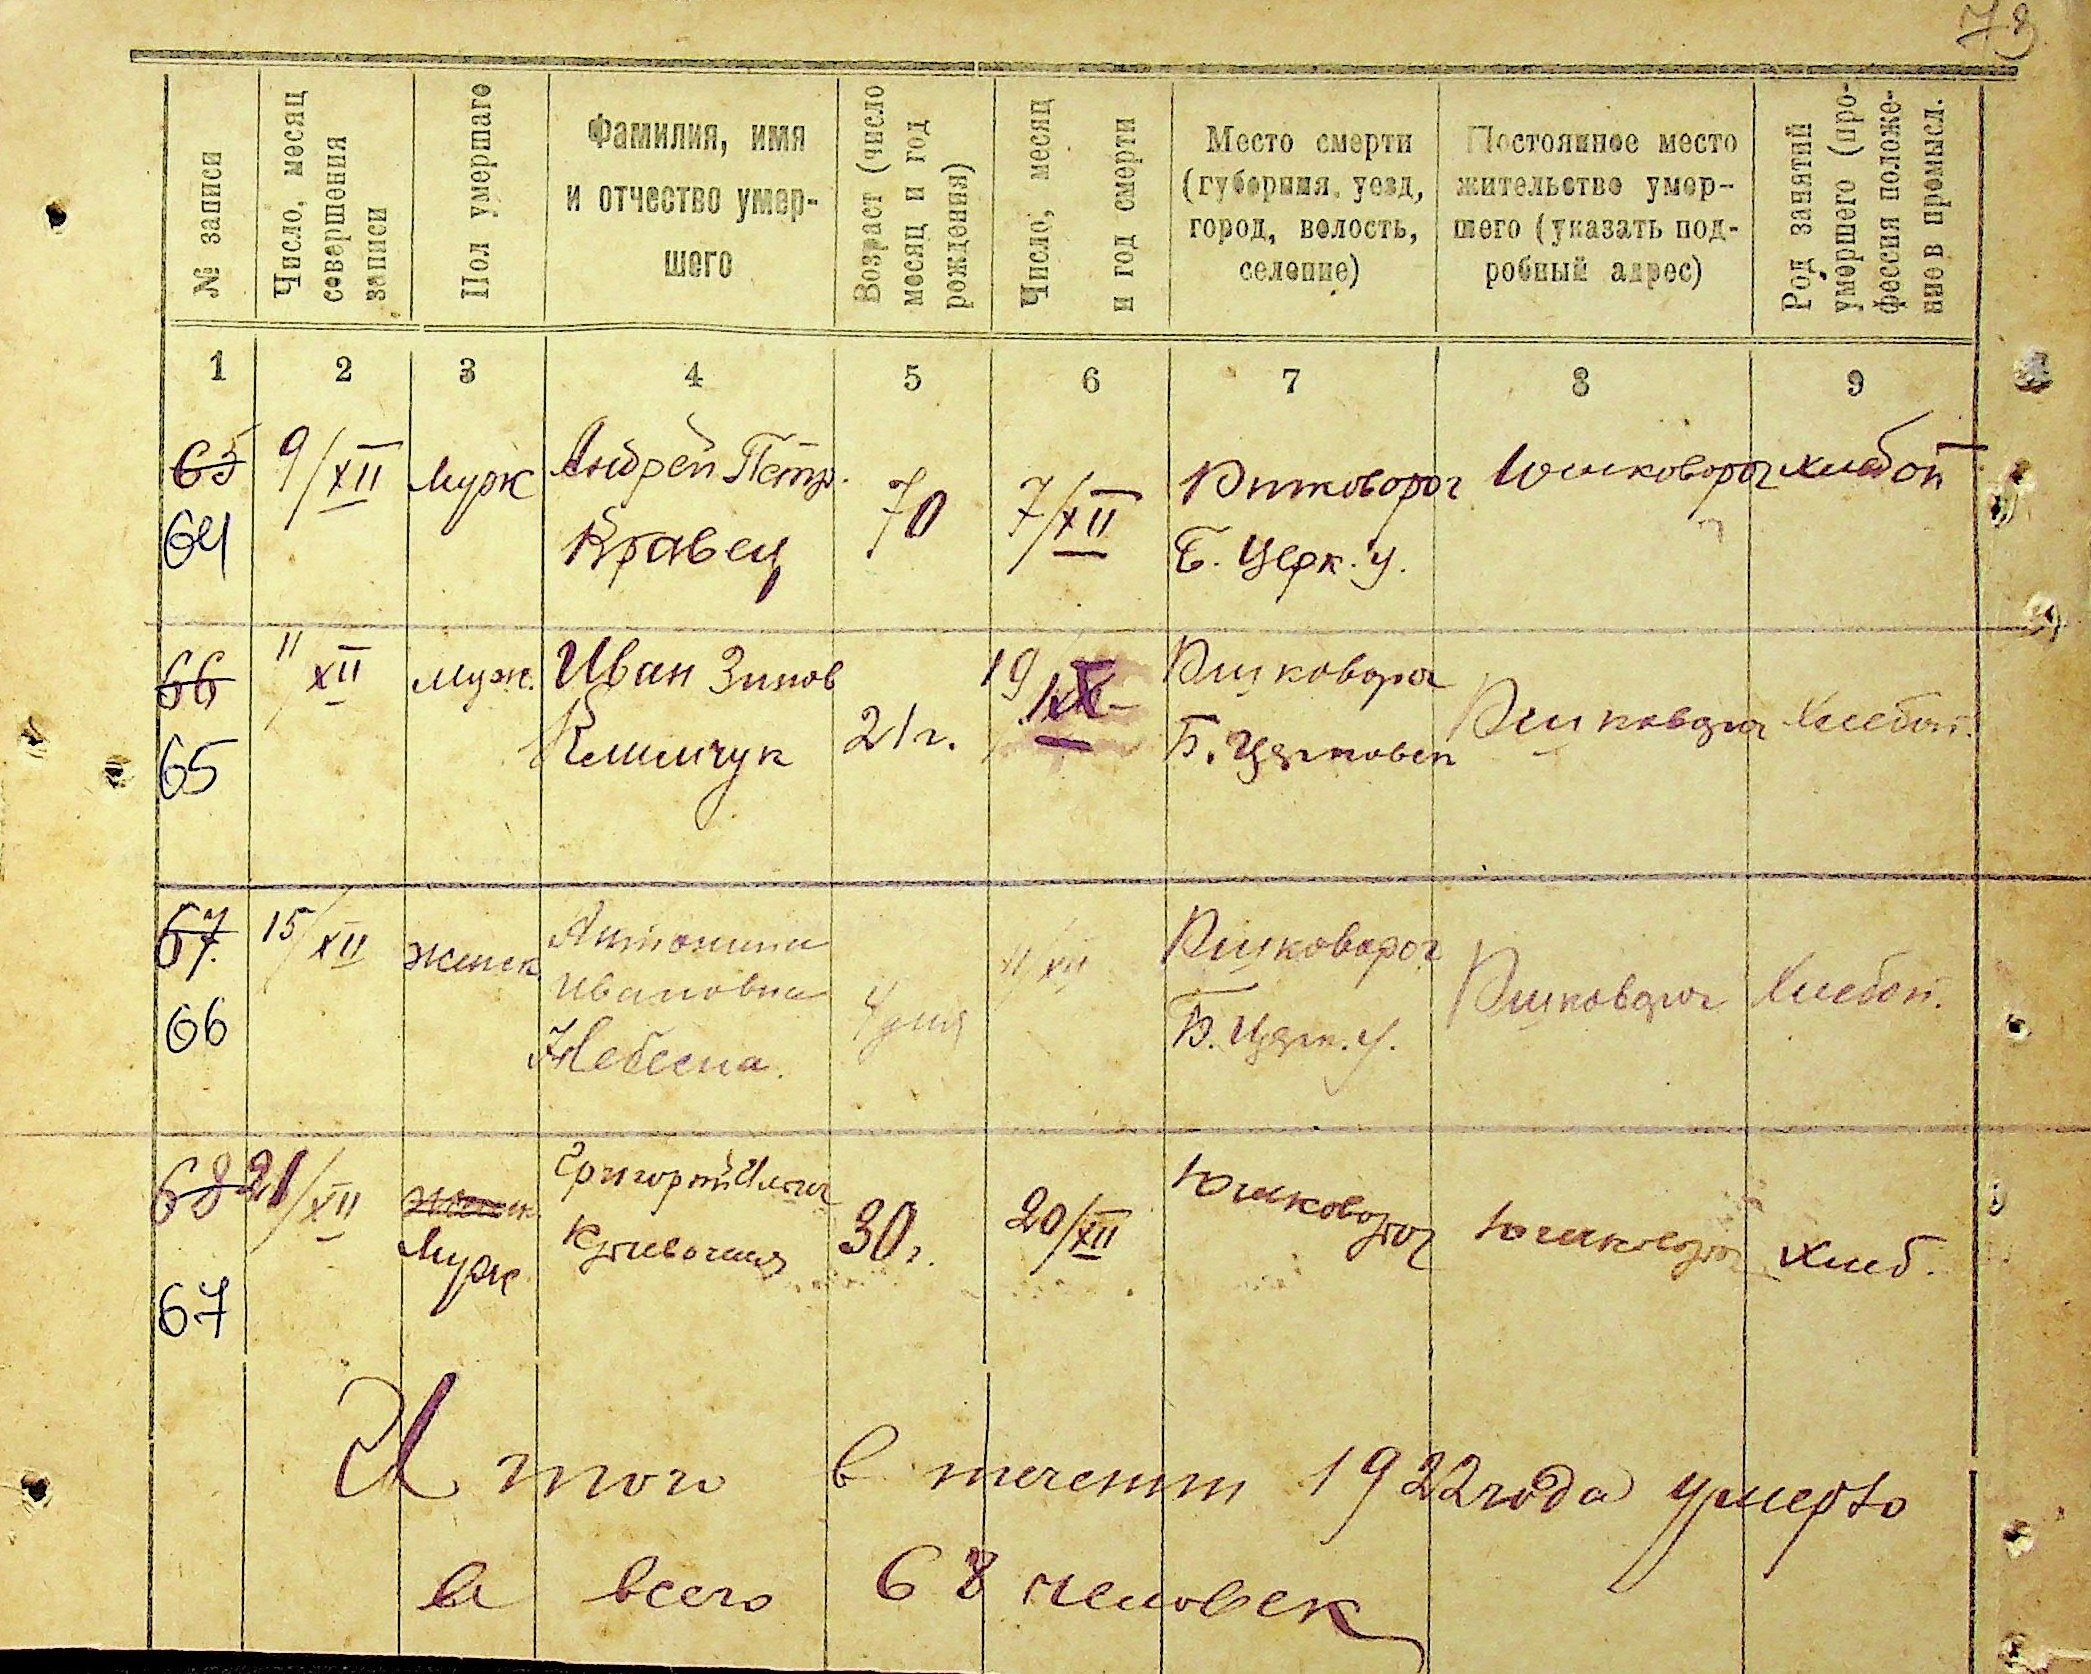 73
№ записи
Число, месяц
совершения
записи
Пол умершаго
Фамилия, имя
и отчество умер-
шего
Возраст (число
месяц и год
рождения)
Число, месяц
и год смерти
Место смерти
(губерния, уезд,
город, волость,
селение)
Постоянное место
жительство умер-
шего (указать под-
робный адрес)
Род занятий
умершего (про-
фессия положе-
ние в промысл.
1 2 3 4 5 6 7 8 9
65 9/XII Муж Андрей Петр. 70 7/XII Юшковорог Юшковорог хлебоп
64 Кравец Б. Церк. у.
66 11/XII Муж. Иван Зинов 21 г. 19/IX Юшковорог Юшковорог Хлебоп.
65 Климчук Б. Церковск
67. 15/XII Женск Антонина 4 дня 11/XII Юшковорог Юшковорог Хлебоп.
Ивановна
66 Небесна. Б. Церк. у.
68 21/XII Женск. Григорий 30 г. 20/XII Юшковорог Юшковорог хлеб.
Муж
67
Итого в течении 1922 года умерло
а всего 68 человек